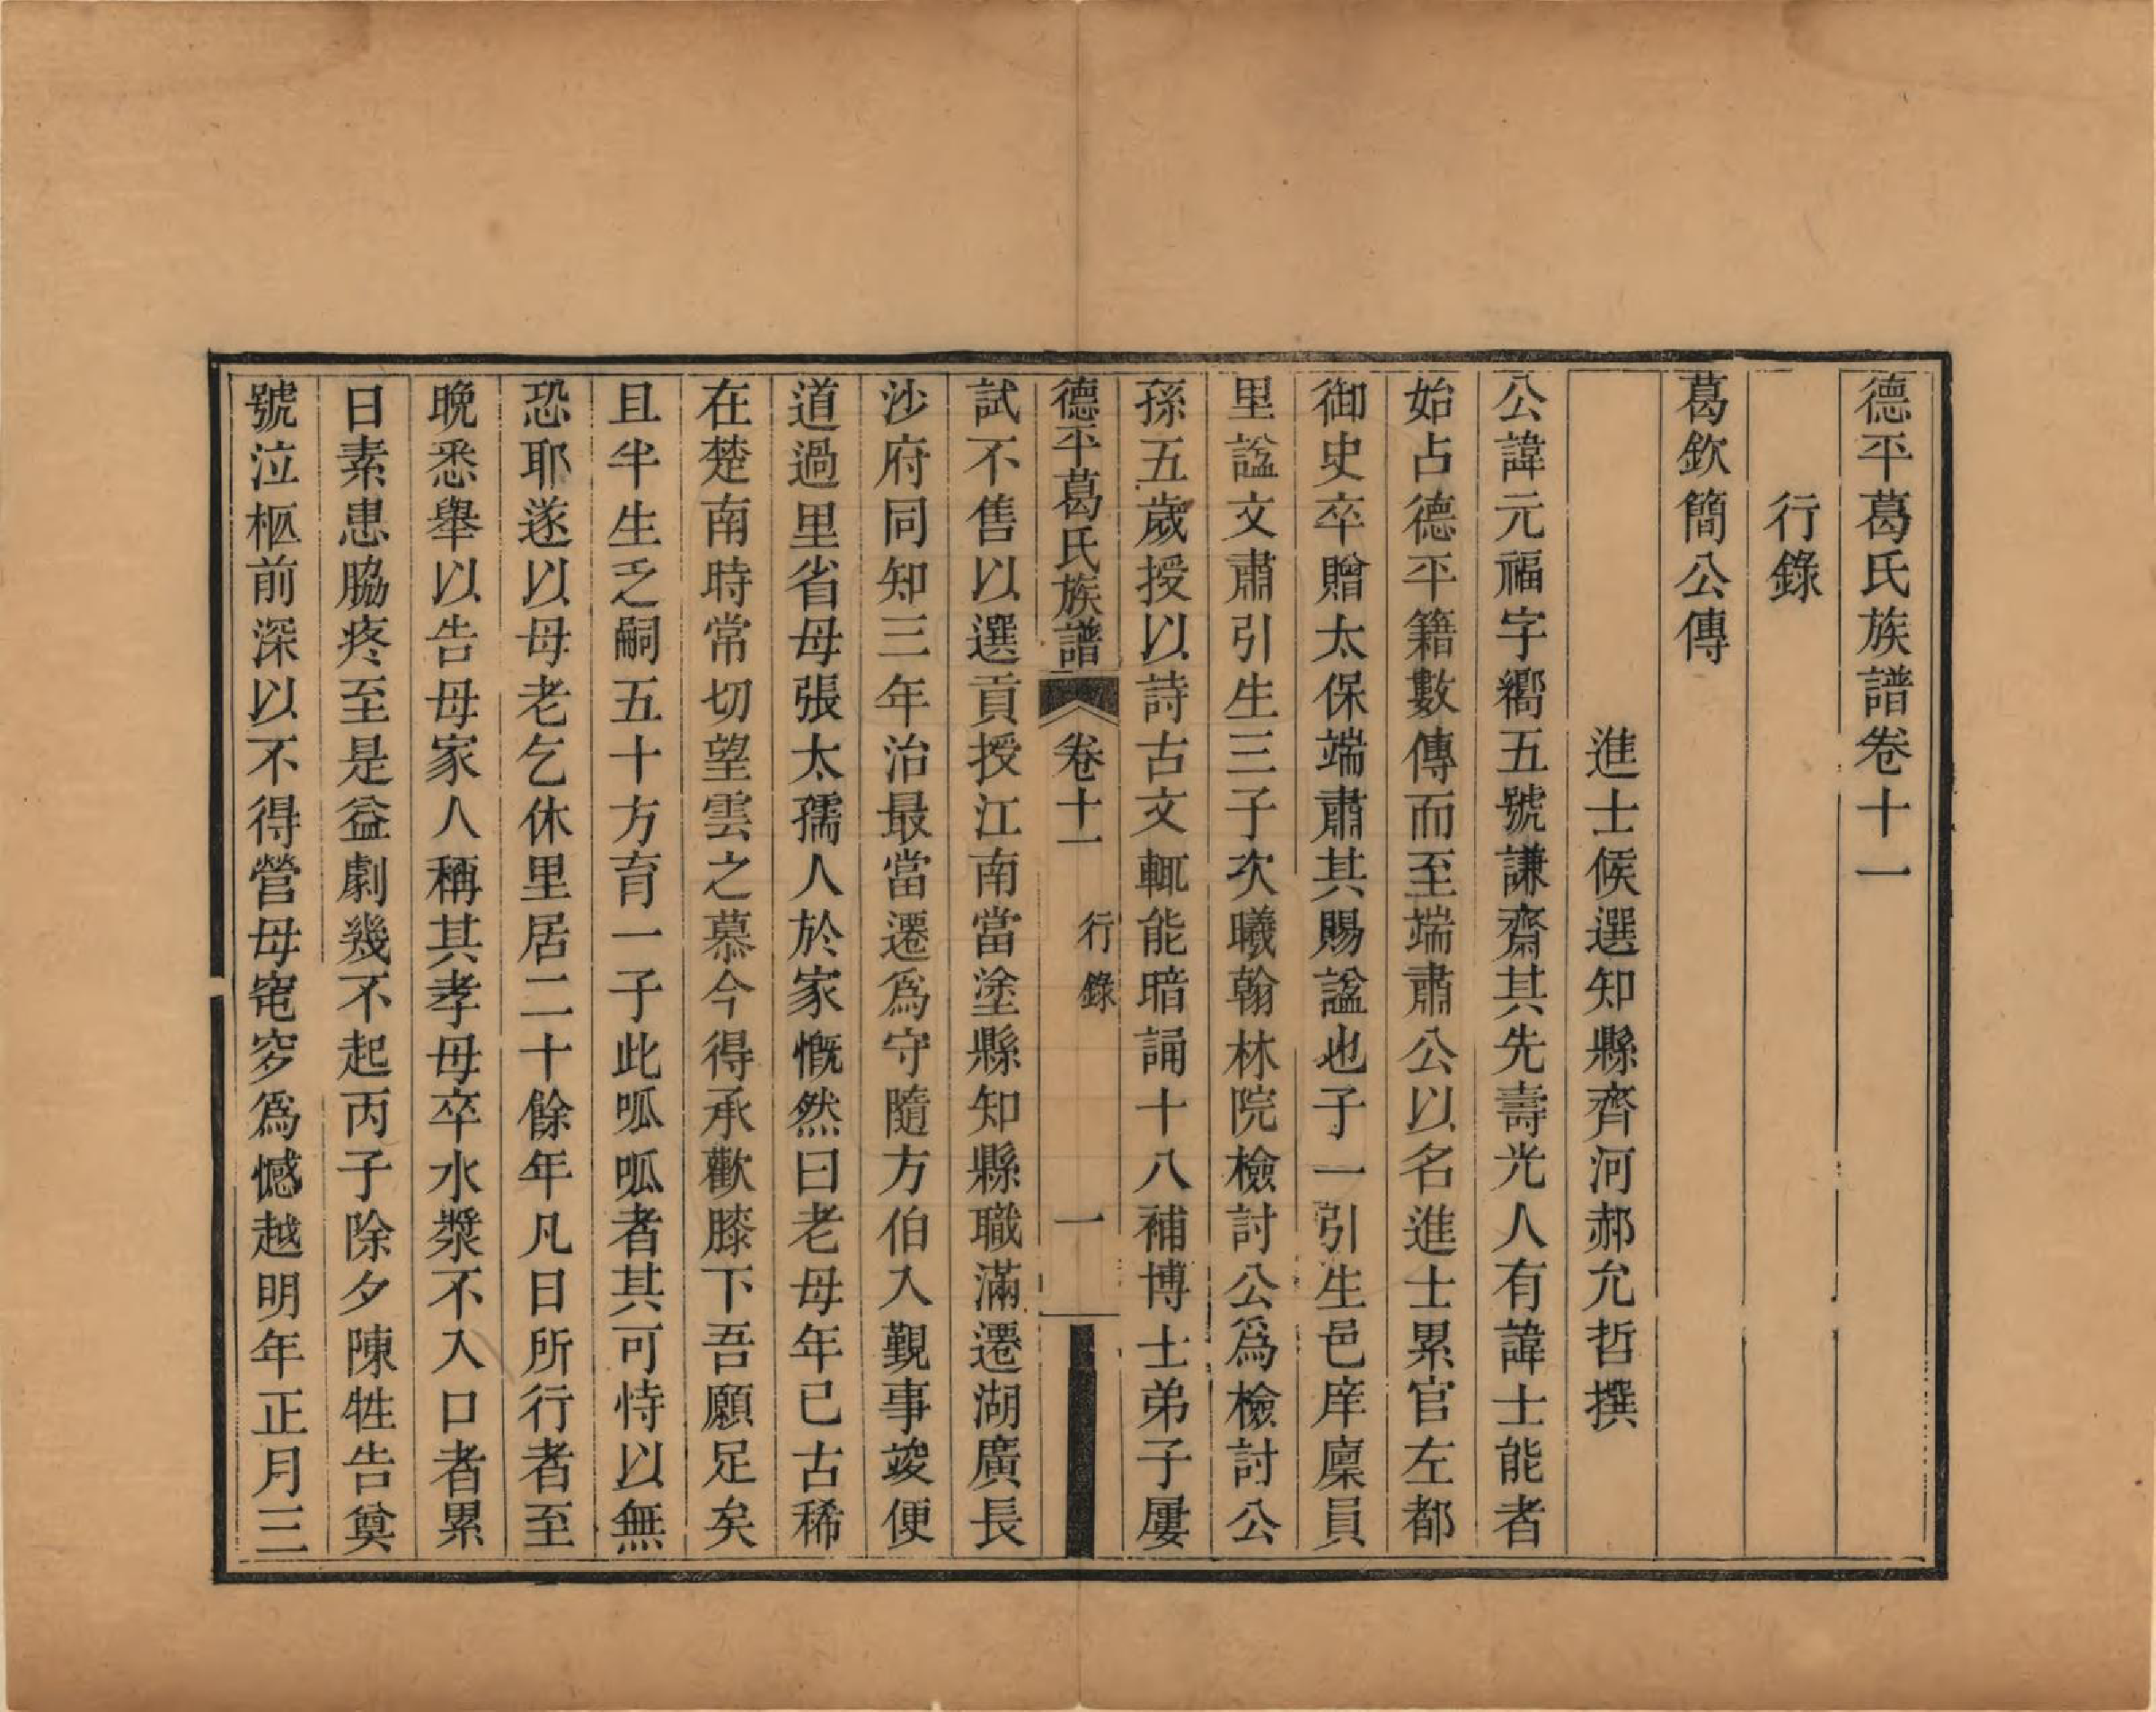 德平葛氏族譜卷十一
行錄
葛欽簡公傳
進士候選知縣齊河郝允哲撰
公諱元福字嚮五號謙齋其先壽光人有諱士能者
始占德平籍數傳而至端肅公以名進士累官左都
御史卒贈太保端肅其賜諡也子一引生邑庠廩員
里諡文肅引生三子次曦翰林院檢討公為檢討公
孫五歲授以詩古文輒能暗誦十八補博士弟子屢
德平葛氏族譜 卷十一 行錄 一
試不售以選貢授江南當塗縣知縣職滿遷湖廣長
沙府同知三年治最當遷為守隨方伯入覲事竣便
道過里省母張太孺人於家慨然曰老母年已古稀
在楚南時常切望雲之慕今得承歡膝下吾願足矣
且半生乏嗣五十方育一子此呱呱者其可恃以無
恐耶遂以母老乞休里居二十餘年凡日所行者至
晚悉舉以告母家人稱其孝母卒水漿不入口者累
日素患脇疼至是益劇幾不起丙子除夕陳牲告奠
號泣柩前深以不得營母窀穸為憾越明年正月三